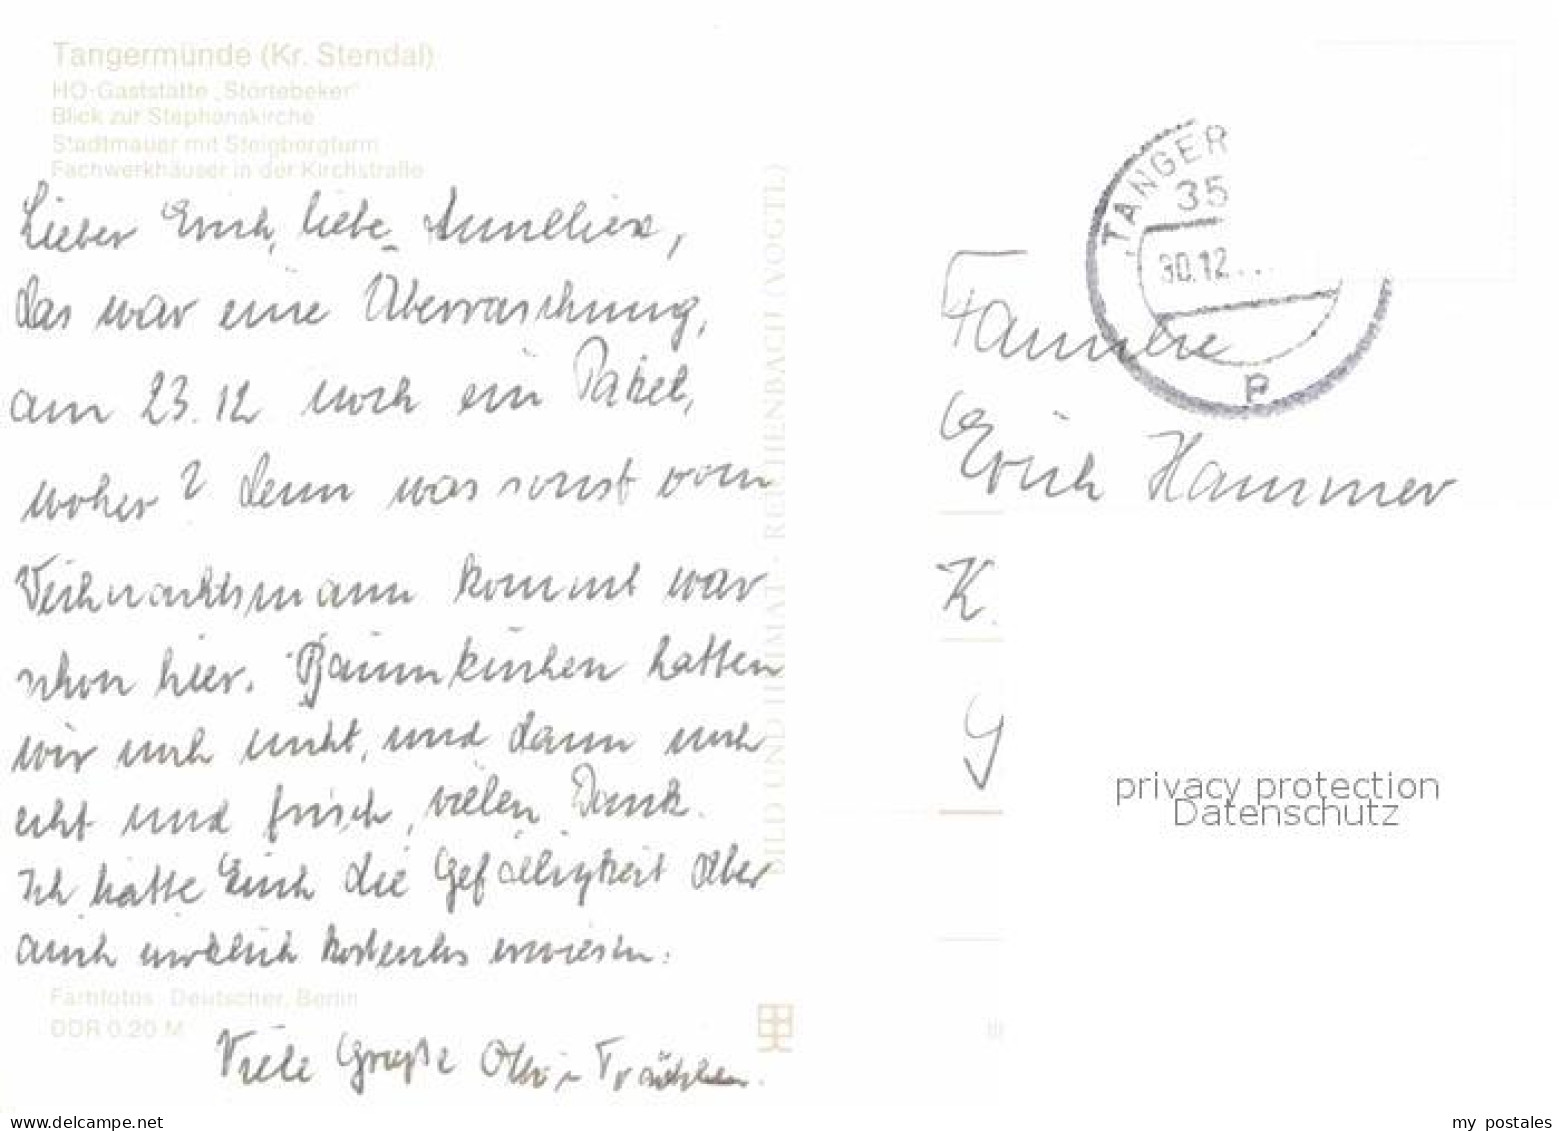 Tangermünde (Kr. Stendal)
HO-Gaststätte „Störtebeker"
Blick zur Stephanskirche
Stadtmauer mit Steigbergturm
Fachwerkhäuser in der Kirchstraße
Lieber Erich, liebe Annelliese,
das war eine Überraschung,
am 23.12 noch ein Paket,
woher? denn was sonst vom
Weihnachtsmann kommt war
schon hier. Baumkuchen hatten
wir noch nicht, und dann noch
echt und frisch, vielen Dank.
Ich hätte Euch die Gefälligkeit aber
auch wirklich kostenlos erwiesen.
Viele Grüße Otto
Farbfotos: Deutscher, Berlin
DDR 0.20 M
BILD UND HEIMAT · REICHENBACH (VOGTL)
TANGER
35
30.12
P
Familie
Erich Hammer
K.
G
privacy protection
Datenschutz
www.delcampe.net
my_postales